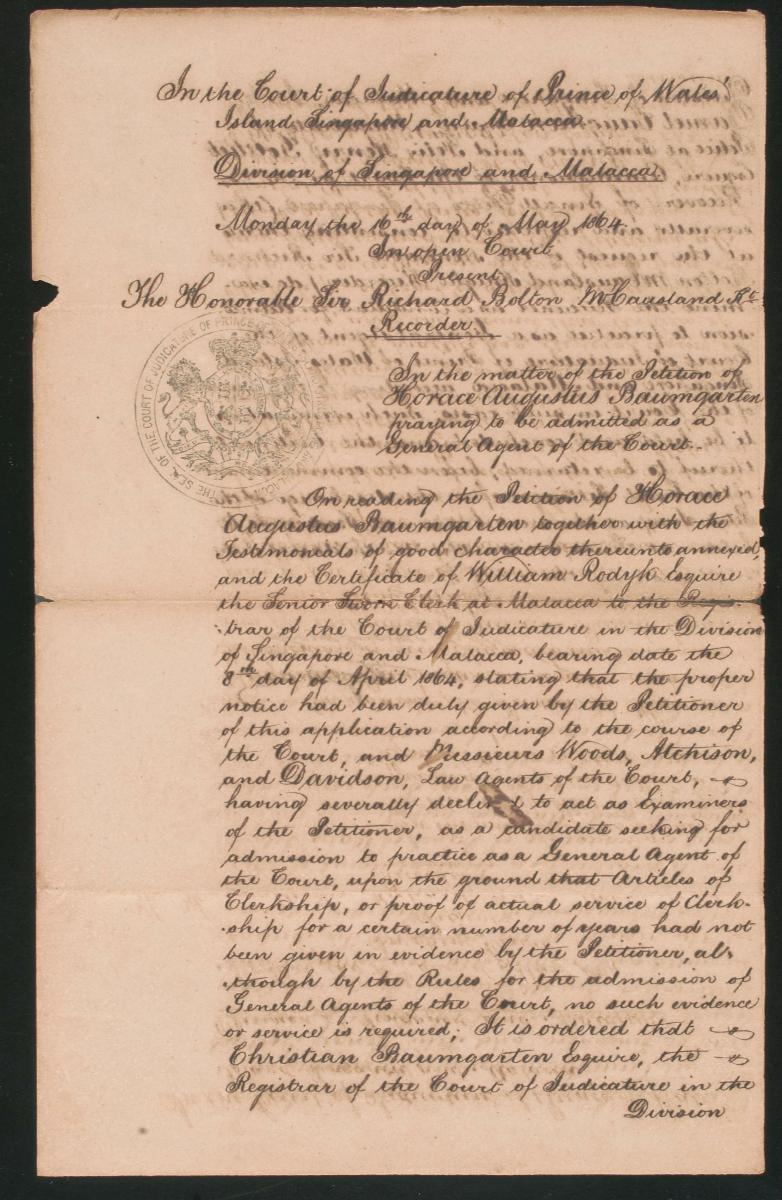 In the Court of Judicature of Prince of Wales'
Island Singapore and Malacca
Division of Singapore and Malacca
Monday the 16th day of May 1864.
In open Court
Present
The Honorable Sir Richard Bolton McCausland Kt.
Recorder.
THE SEAL OF THE COURT OF JUDICATURE OF PRINCE
In the matter of the Petition of
Horace Augustus Baumgarten
praying to be admitted as a
General Agent of the Court.
On reading the Petition of Horace
Augustus Baumgarten together with the
Testimonials of good character thereunto annexed,
and the Certificate of William Rodyk Esquire
the Senior Sworn Clerk at Malacca to the Regis-
-trar of the Court of Judicature in the Division
of Singapore and Malacca, bearing date the
8th day of April 1864, stating that the proper
notice had been duly given by the Petitioner
of this application according to the course of
the Court, and Messieurs Woods, Atchison,
and Davidson, Law Agents of the Court,
having severally declined to act as Examiners
of the Petitioner, as a candidate seeking for
admission to practice as a General Agent of
the Court, upon the ground that Articles of
Clerkship, or proof of actual service of Clerk-
-ship for a certain number of years had not
been given in evidence by the Petitioner, al-
-though by the Rules for the admission of
General Agents of the Court, no such evidence
or service is required; It is ordered that
Christian Baumgarten Esquire, the
Registrar of the Court of Judicature in the
Division